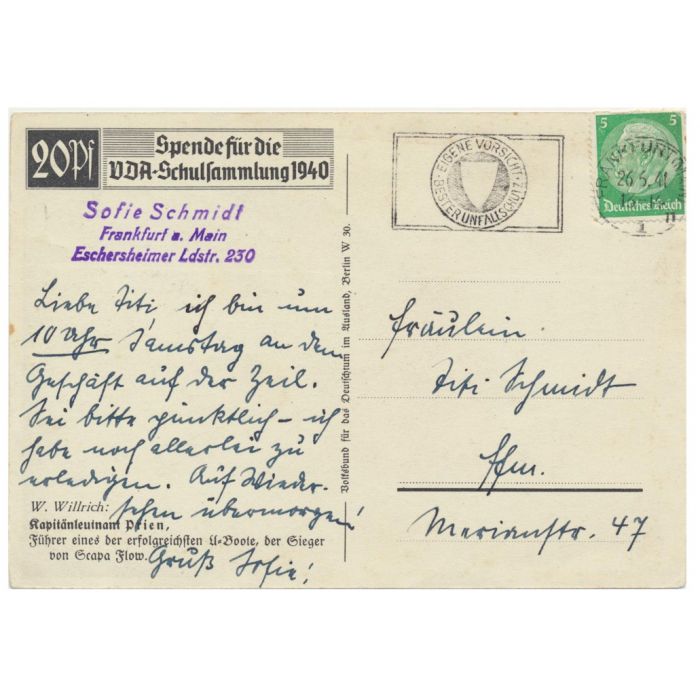 20Pf
Spende für die
VDA-Schulsammlung 1940
Sofie Schmidt
Frankfurt a. Main
Eschersheimer Ldstr. 230
Liebe Titi, ich bin um
10 Uhr Samstag an dem
Geschäft auf der Zeil.
Sei bitte pünktlich – ich
habe noch allerlei zu
erledigen. Auf Wieder-
sehen übermorgen!
Gruß Sofie!
W. Willrich:
Kapitänleutnant Prien,
Führer eines der erfolgreichsten U-Boote, der Sieger
von Scapa Flow.
Volksbund für das Deutschtum im Ausland, Berlin W 30.
EIGENE VORSICHT
BESTER UNFALLSCHUTZ
5 5
Deutsches Reich
FRANKFURT (MAIN)
26.5.41
1
Fräulein
Titi Schmidt
Ffm.
Merianstr. 47